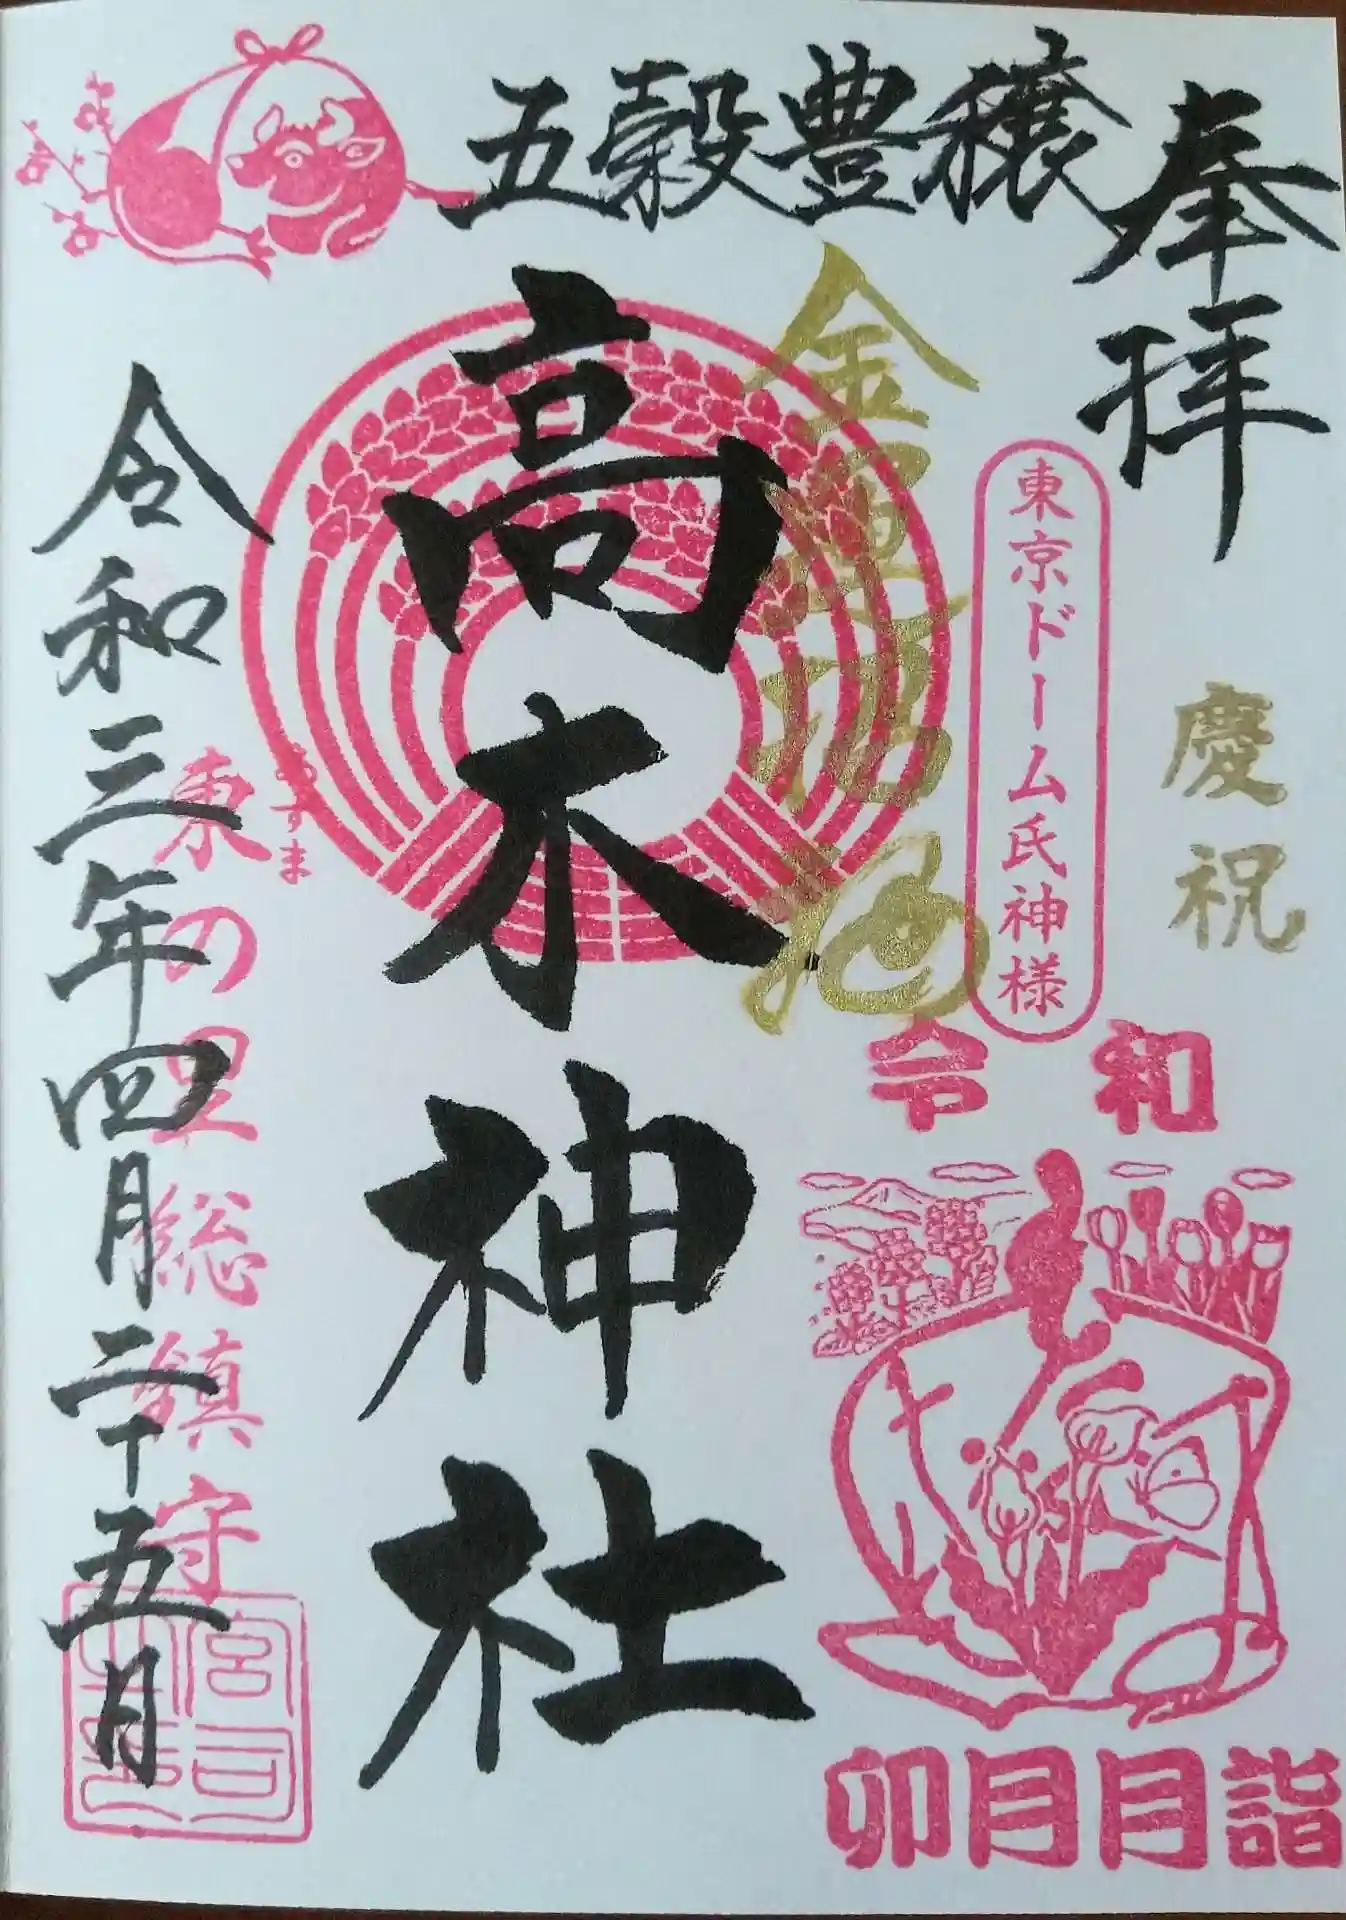 奉拝
五穀豊穣
慶祝
東京ドーム氏神様
金運招福
令和
卯月月詣
高木神社
東の里総鎮守
あずま
令和三年四月二十五日
宮司